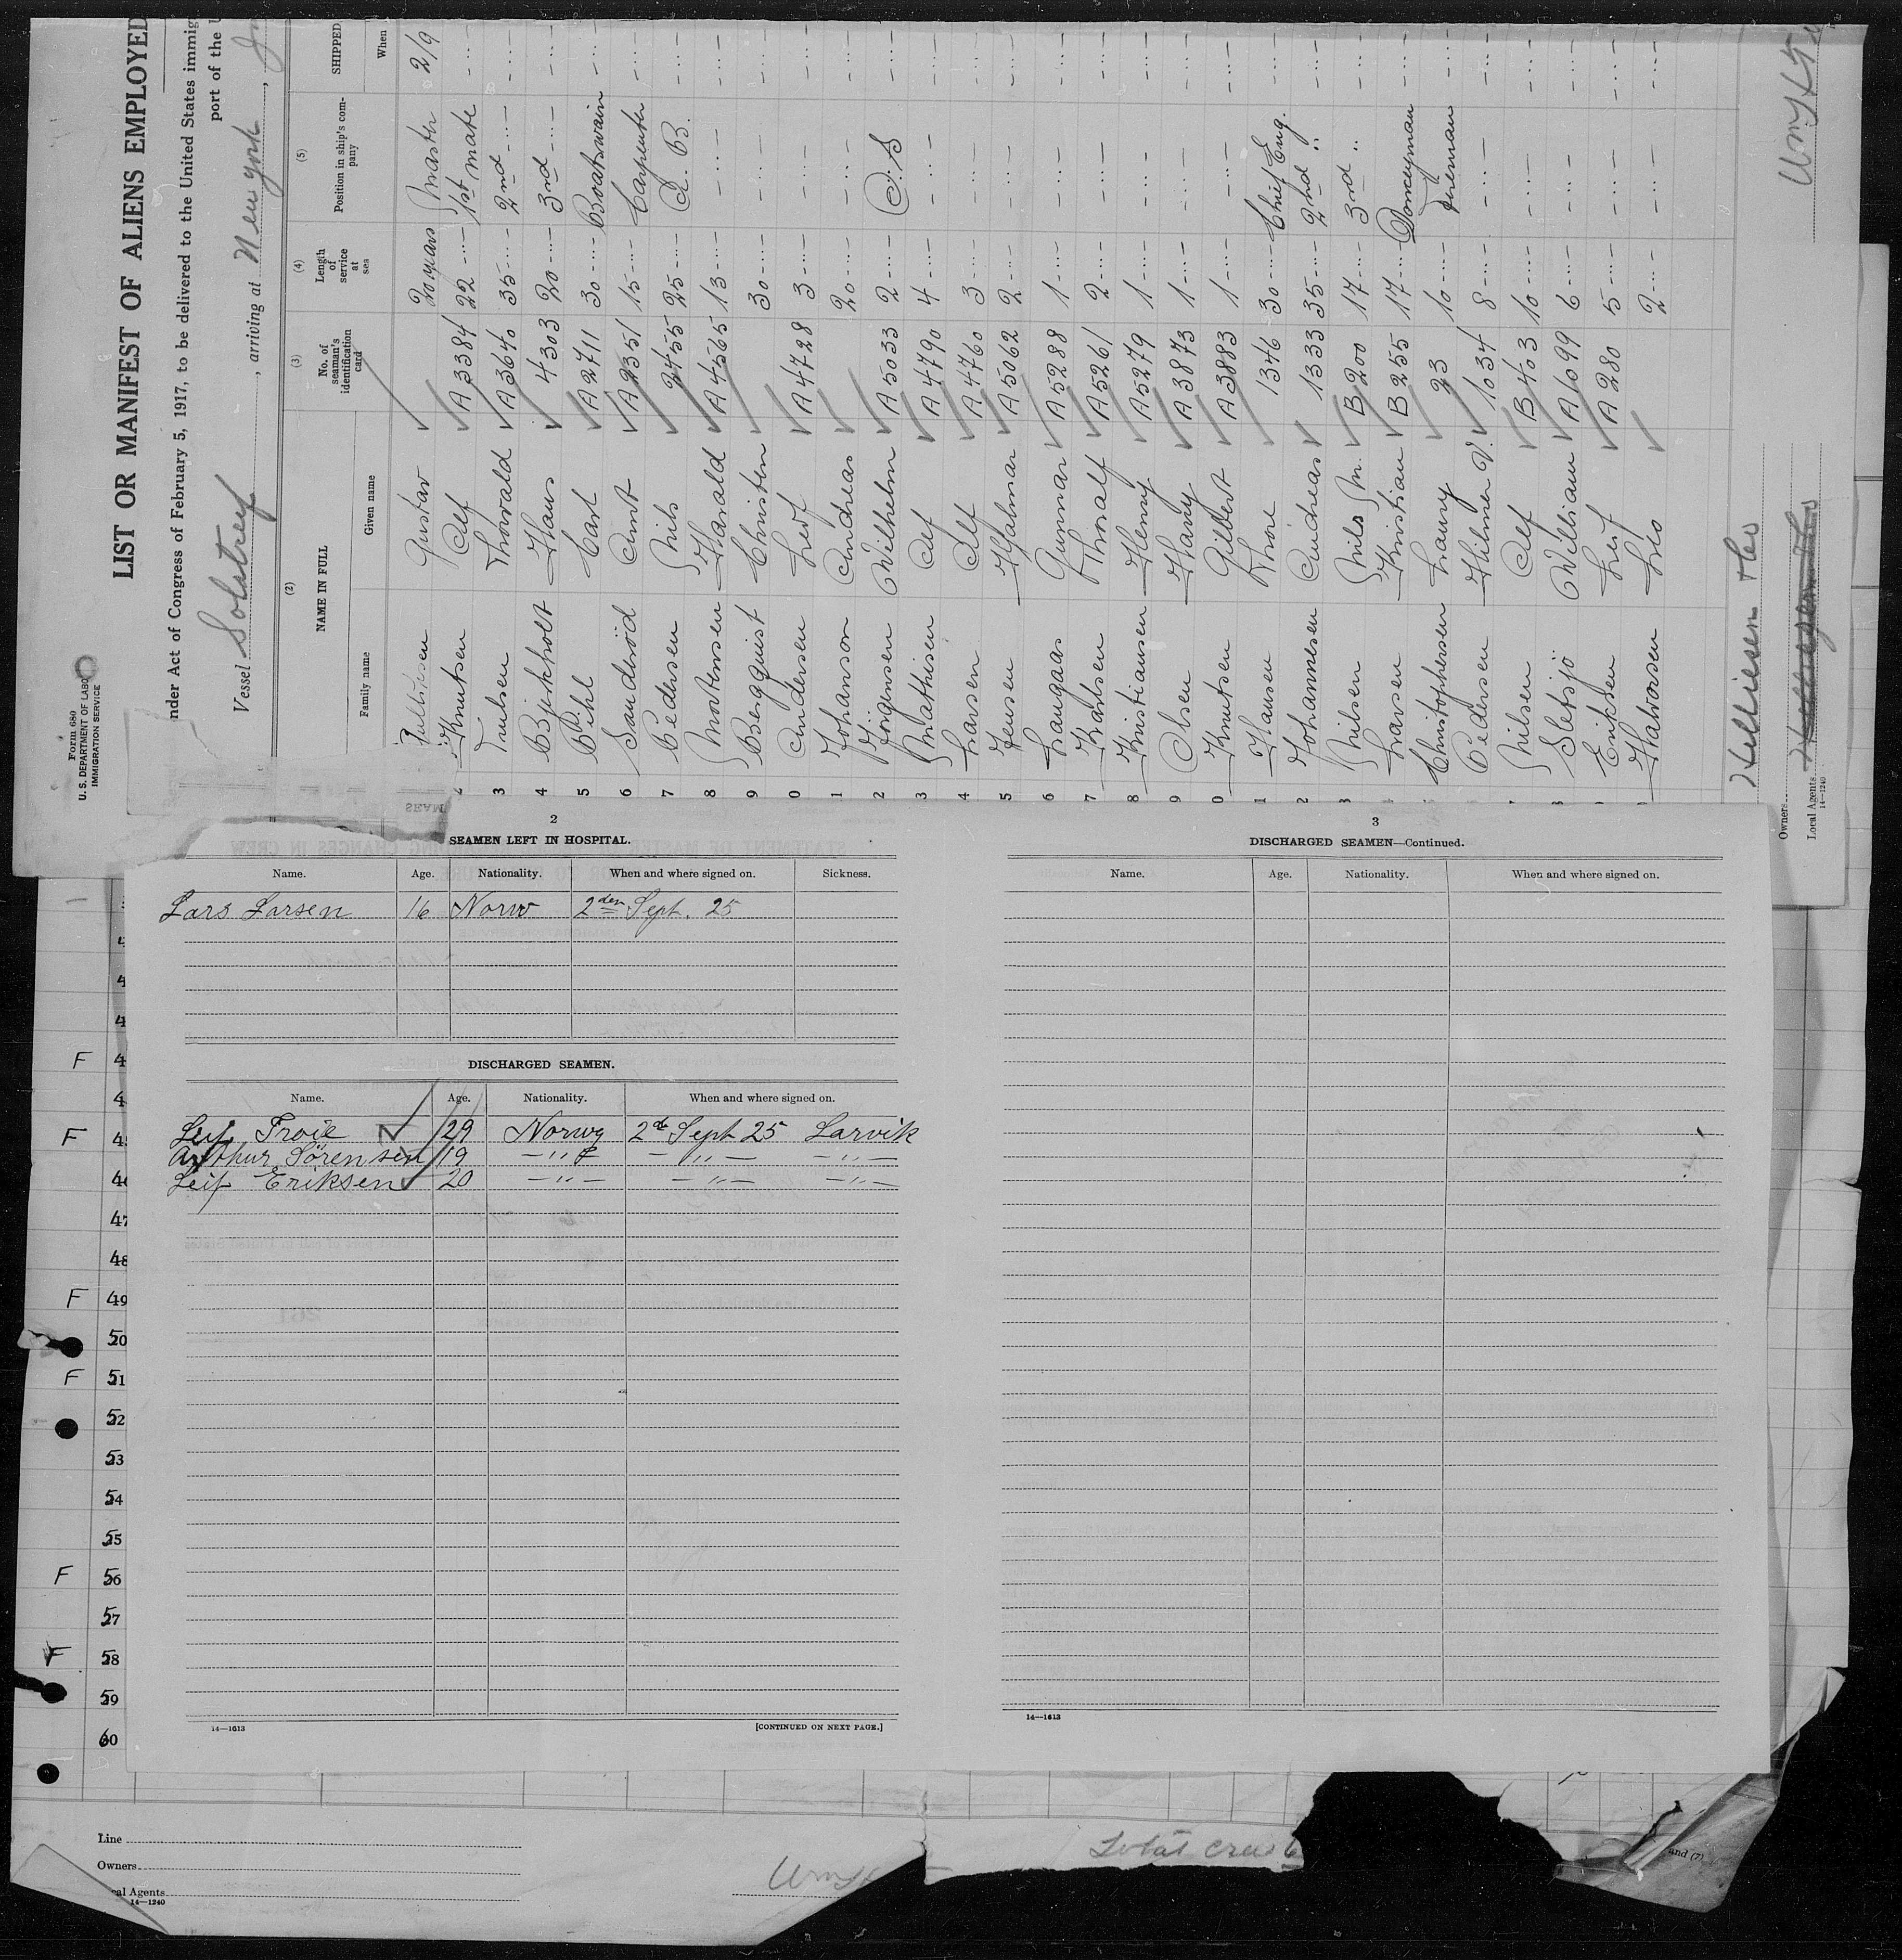 Form 680
U. S. DEPARTMENT OF LABO
IMMIGRATION SERVICE
LIST OR MANIFEST OF ALIENS EMPLOYED
nder Act of Congress of February 5, 1917, to be delivered to the United States immig
port of the U
Vessel Solstreif, arriving at New York,
(2) (3) (4) (5)
NAME IN FULL No. of seaman's identification card Length of service at sea Position in ship's company SHIPPED
Family name Given name When
Gustav 20 years Master 2/9
Knutsen Alf A3384 22 -"- 1st mate -"-
3 Paulsen Thorvald A3640 35 -"- 2nd -"- -"-
4 Bjerkholt Hans 4303 20 -"- 3rd -"- -"-
5 Pihl Carl A2711 30 -"- Boatswain -"-
6 Sanderöd Arnt A2351 15 -"- Carpenter -"-
7 Pedersen Nils 2455 25 -"- A.B. -"-
8 Mortensen Harald A4565 13 -"- -"- -"-
9 Bergquist Christen 30 -"- -"- -"-
0 Andersen Leif A4728 3 -"- -"- -"-
1 Johanson Andreas 20 -"- -"- -"-
2 Jörgensen Wilhelm A5033 2 -"- O.S -"-
3 Mathisen Alf A4790 4 -"- -"- -"-
4 Larsen Alf A4760 3 -"- -"- -"-
5 Jensen Hjalmar A5062 2 -"- -"- -"-
6 Langaas Gunnar A5288 1 -"- -"- -"-
7 Karlsen Thoralf A5261 2 -"- -"- -"-
8 Kristiansen Henry A5279 1 -"- -"- -"-
9 Olsen Harry A3873 1 -"- -"- -"-
0 Knutsen Gilbert A3883 1 -"- -"- -"-
1 Hansen Thore 1346 30 -"- Chief Eng. -"-
2 Johannesen Andreas 1333 35 -"- 2nd " -"-
3 Nilsen Nils M. B200 17 -"- 3rd " -"-
Larsen Kristian B255 17 -"- Donkeyman -"-
Christophersen Laury 23 10 -"- Fireman -"-
Pedersen Hilmer V. 1034 8 -"- -"- -"-
Nilsen Alf B403 10 -"- -"- -"-
Sletsjö William A1099 6 -"- -"- -"-
Eriksen Leif A280 5 -"- -"- -"-
Halvorsen 2 -"- -"- -"-
Owners
Local Agents
14—1240
2
SEAMEN LEFT IN HOSPITAL.
Name. Age. Nationality. When and where signed on. Sickness.
Lars Larsen 16 Norw 2den Sept. 25
DISCHARGED SEAMEN.
Name. Age. Nationality. When and where signed on.
Leif Troie 29 Norwg 2de Sept 25 Larvik
Arthur Sörensen 19 -"- -"- -"-
Leif Eriksen 20 -"- -"- -"-
14—1613 [CONTINUED ON NEXT PAGE.]
3
DISCHARGED SEAMEN—Continued.
Name. Age. Nationality. When and where signed on.
14—1613
4
4
4
F 4
4
F 45
46
47
48
F 49
50
F 51
52
53
54
55
F 56
57
F 58
59
60
Line
Owners
cal Agents
14—1240
Total crew
and (7)